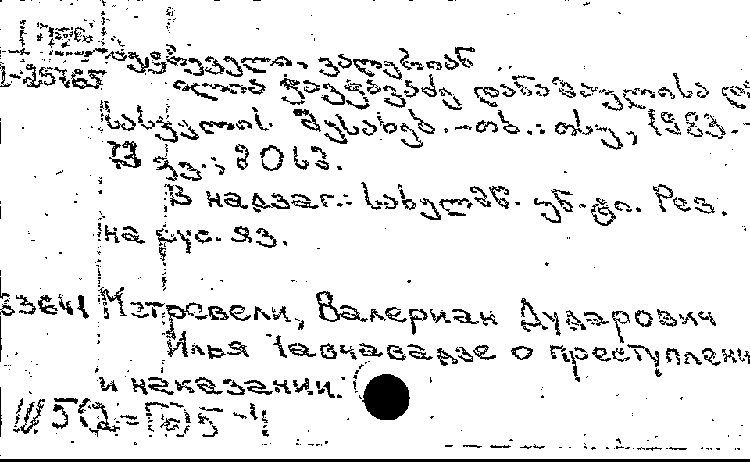 მეტრეველი, ვალერიან
1-25765
ილია ჭავჭავაძე დანაშაულისა და
სასჯელის შესახებ. -თბ.: თსუ, 1983.-
79 გვ.; 20 სმ.
В надзаг.: სახელმწ. უნ-ტი. Рез.
на рус. яз.
83641 Метревели, Валериан Дударович
Илья Чавчавадзе о преступлени
и наказании.